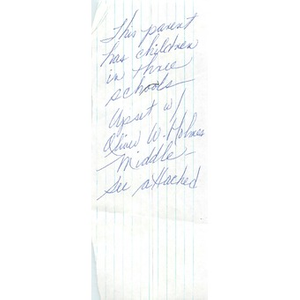 This parent
has children
in three
schools -
Upset w/
Oliver W. Holmes
Middle -
See attached